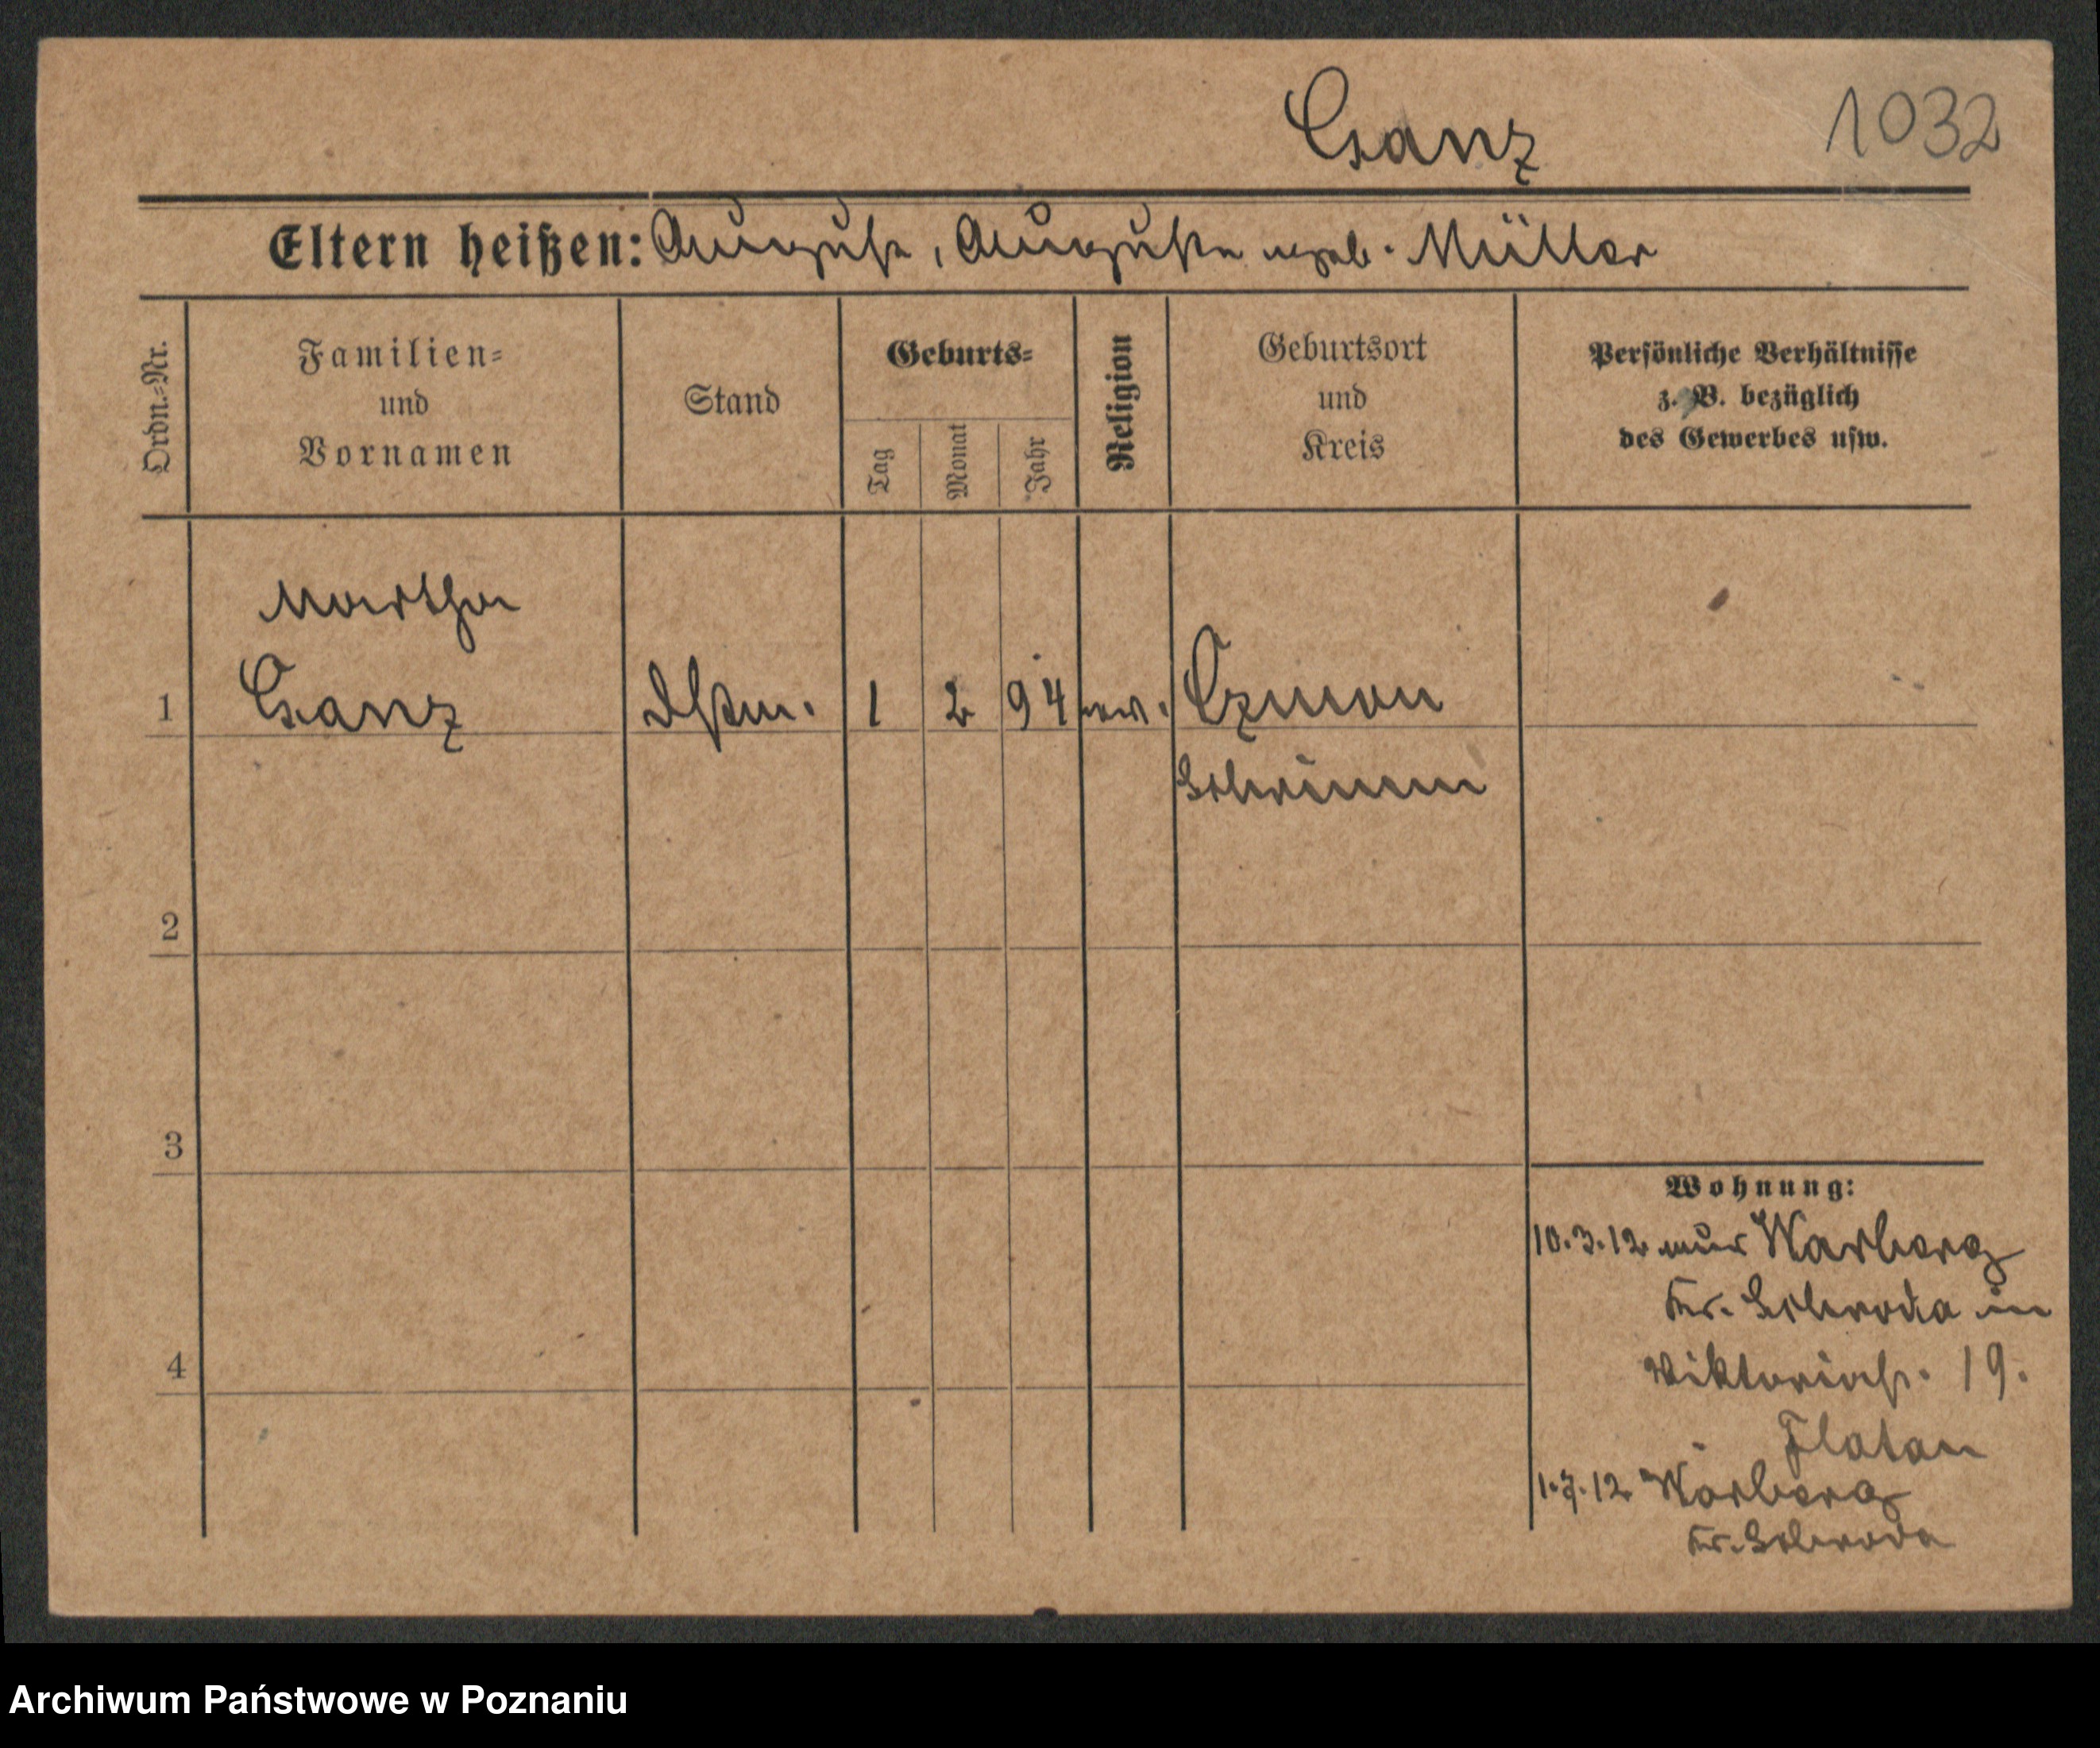 Ganz
1032
Eltern heißen: August, Auguste geb. Müller
Ordn.-Nr.
Familien-
und
Vornamen
Stand
Geburts-
Tag
Monat
Jahr
Religion
Geburtsort
und
Kreis
Persönliche Verhältnisse
z. B. bezüglich
des Gewerbes usw.
Martha
1 Ganz Dstm. 1 2 94 ev. Czmon
Schrimm
2
3
4
Wohnung:
10.3.12 aus Warberg
Kr. Schroda in
Viktoriastr. 19.
Flatau
1.7.12 Warberg
Kr. Schroda
Archiwum Państwowe w Poznaniu